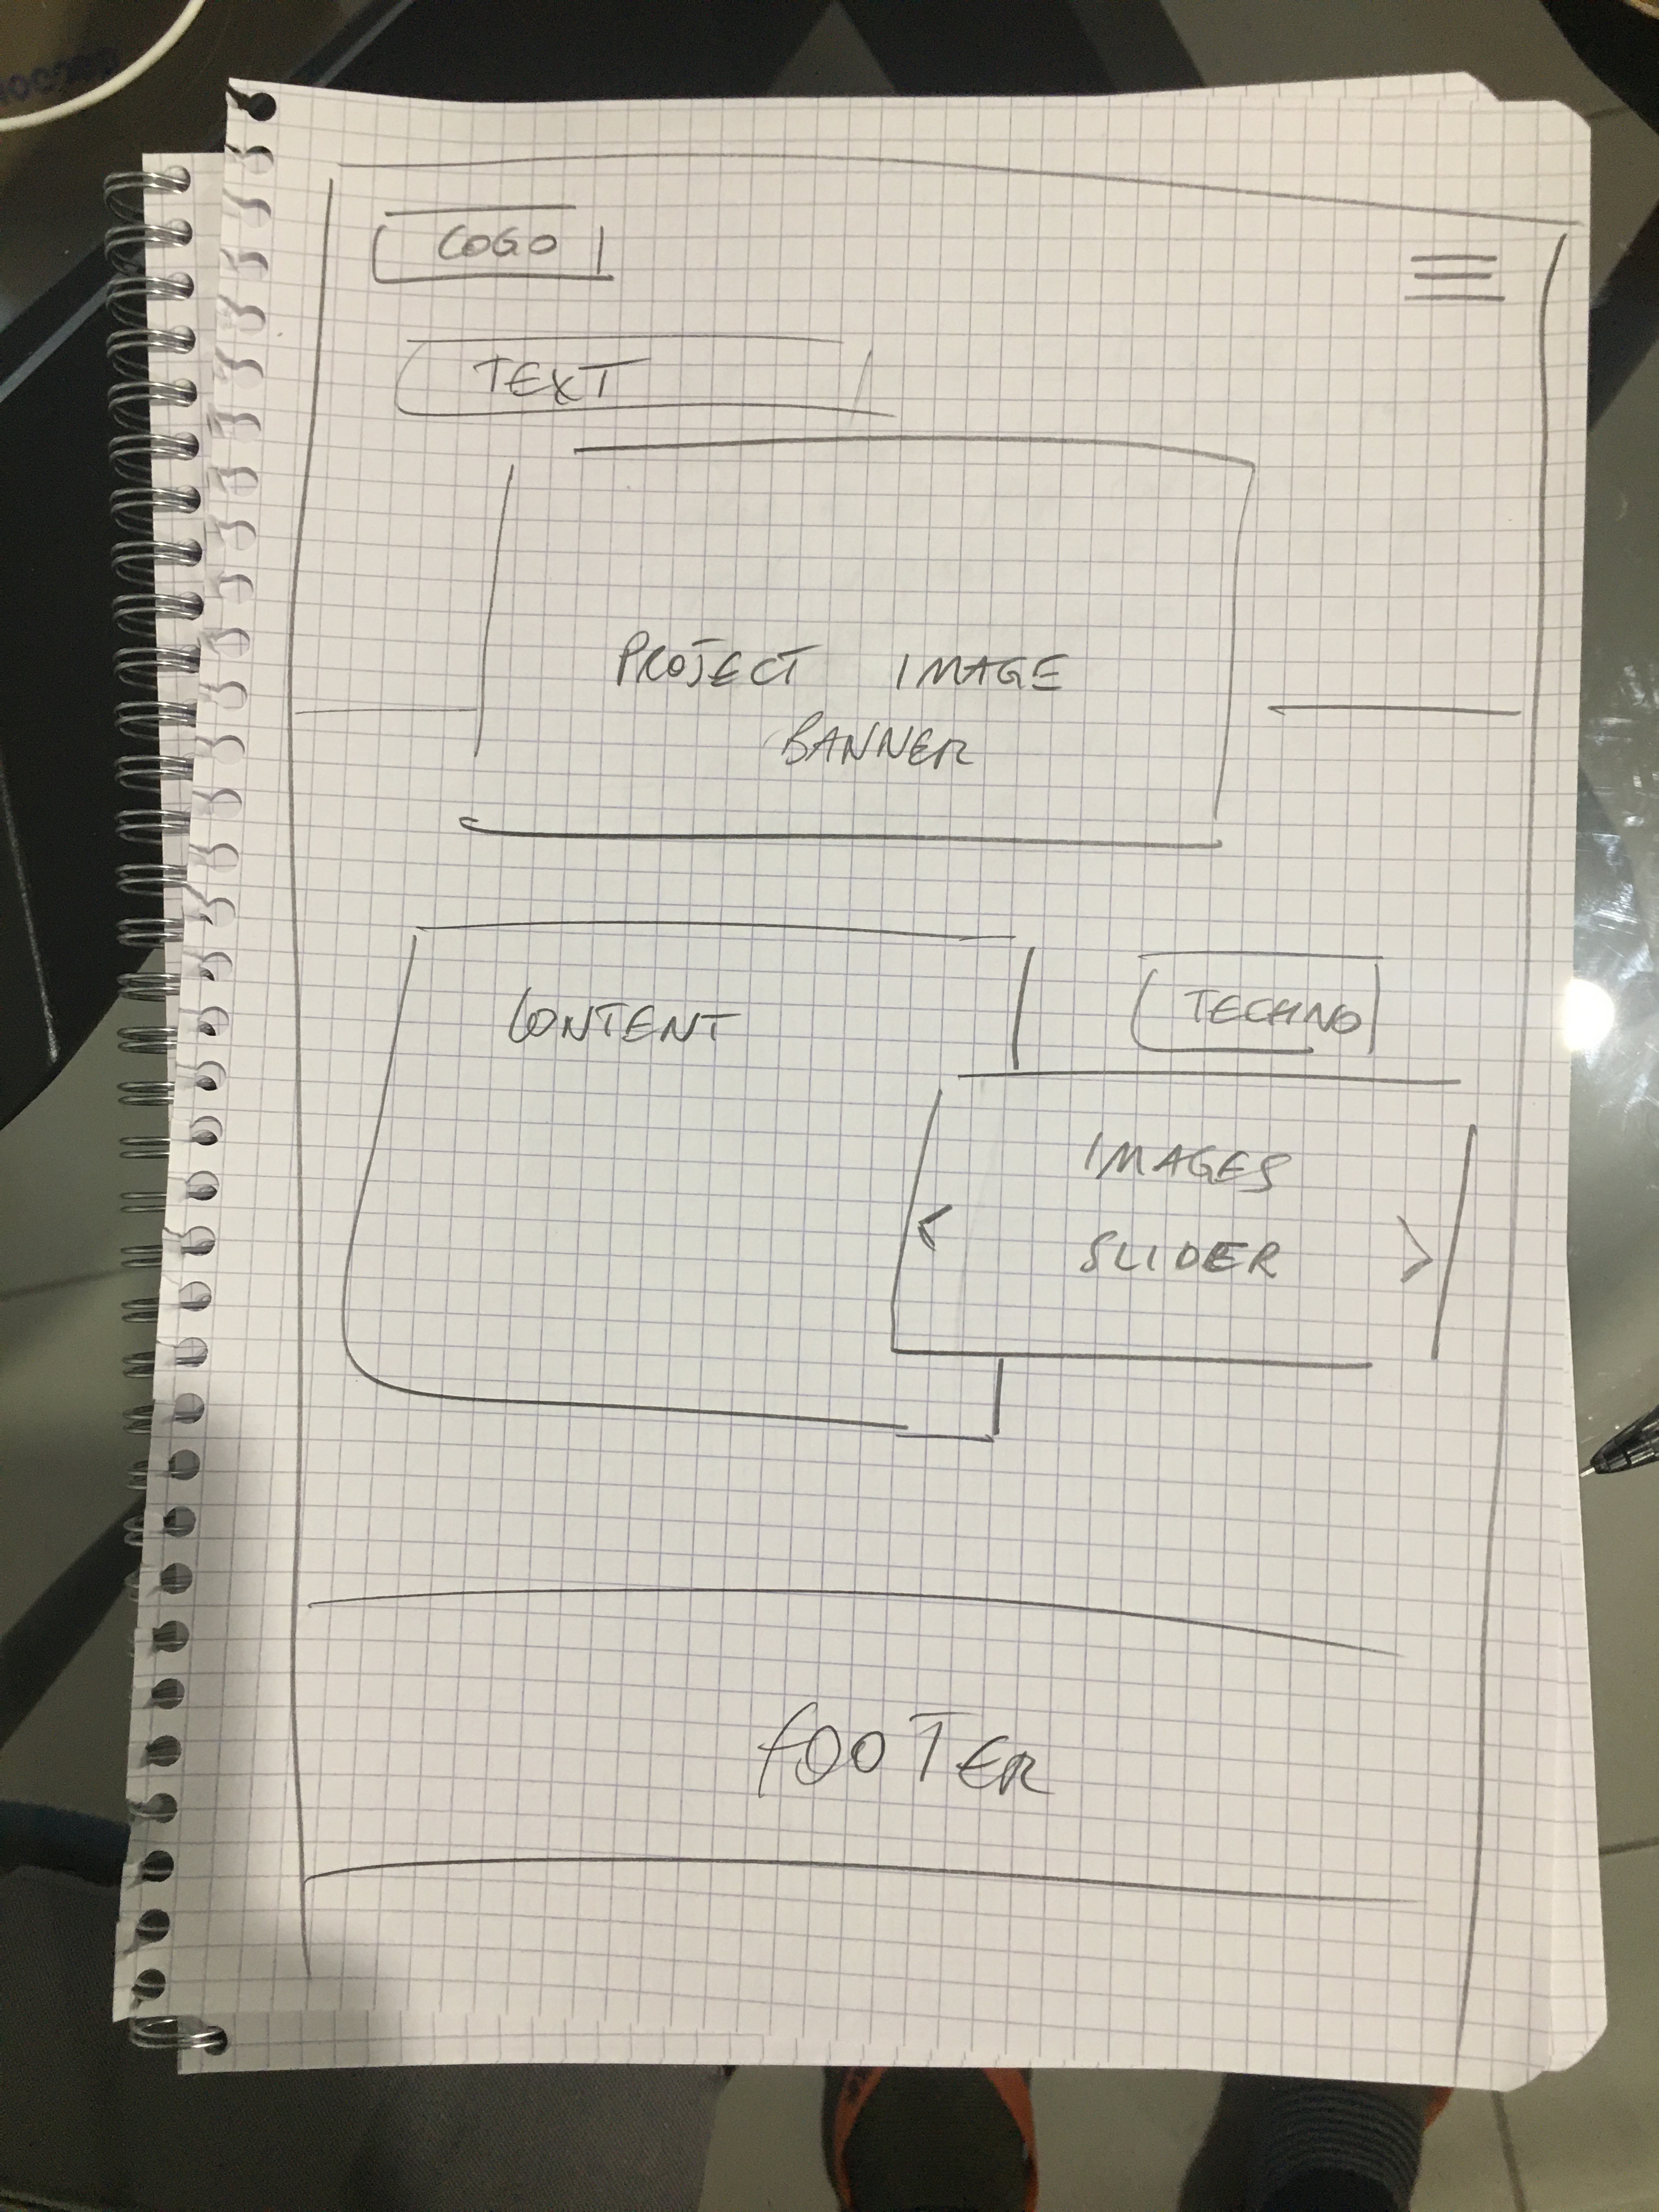 LOGO
TEXT
PROJECT IMAGE
BANNER
CONTENT
TECHNO
IMAGES
SLIDER
< >
FOOTER